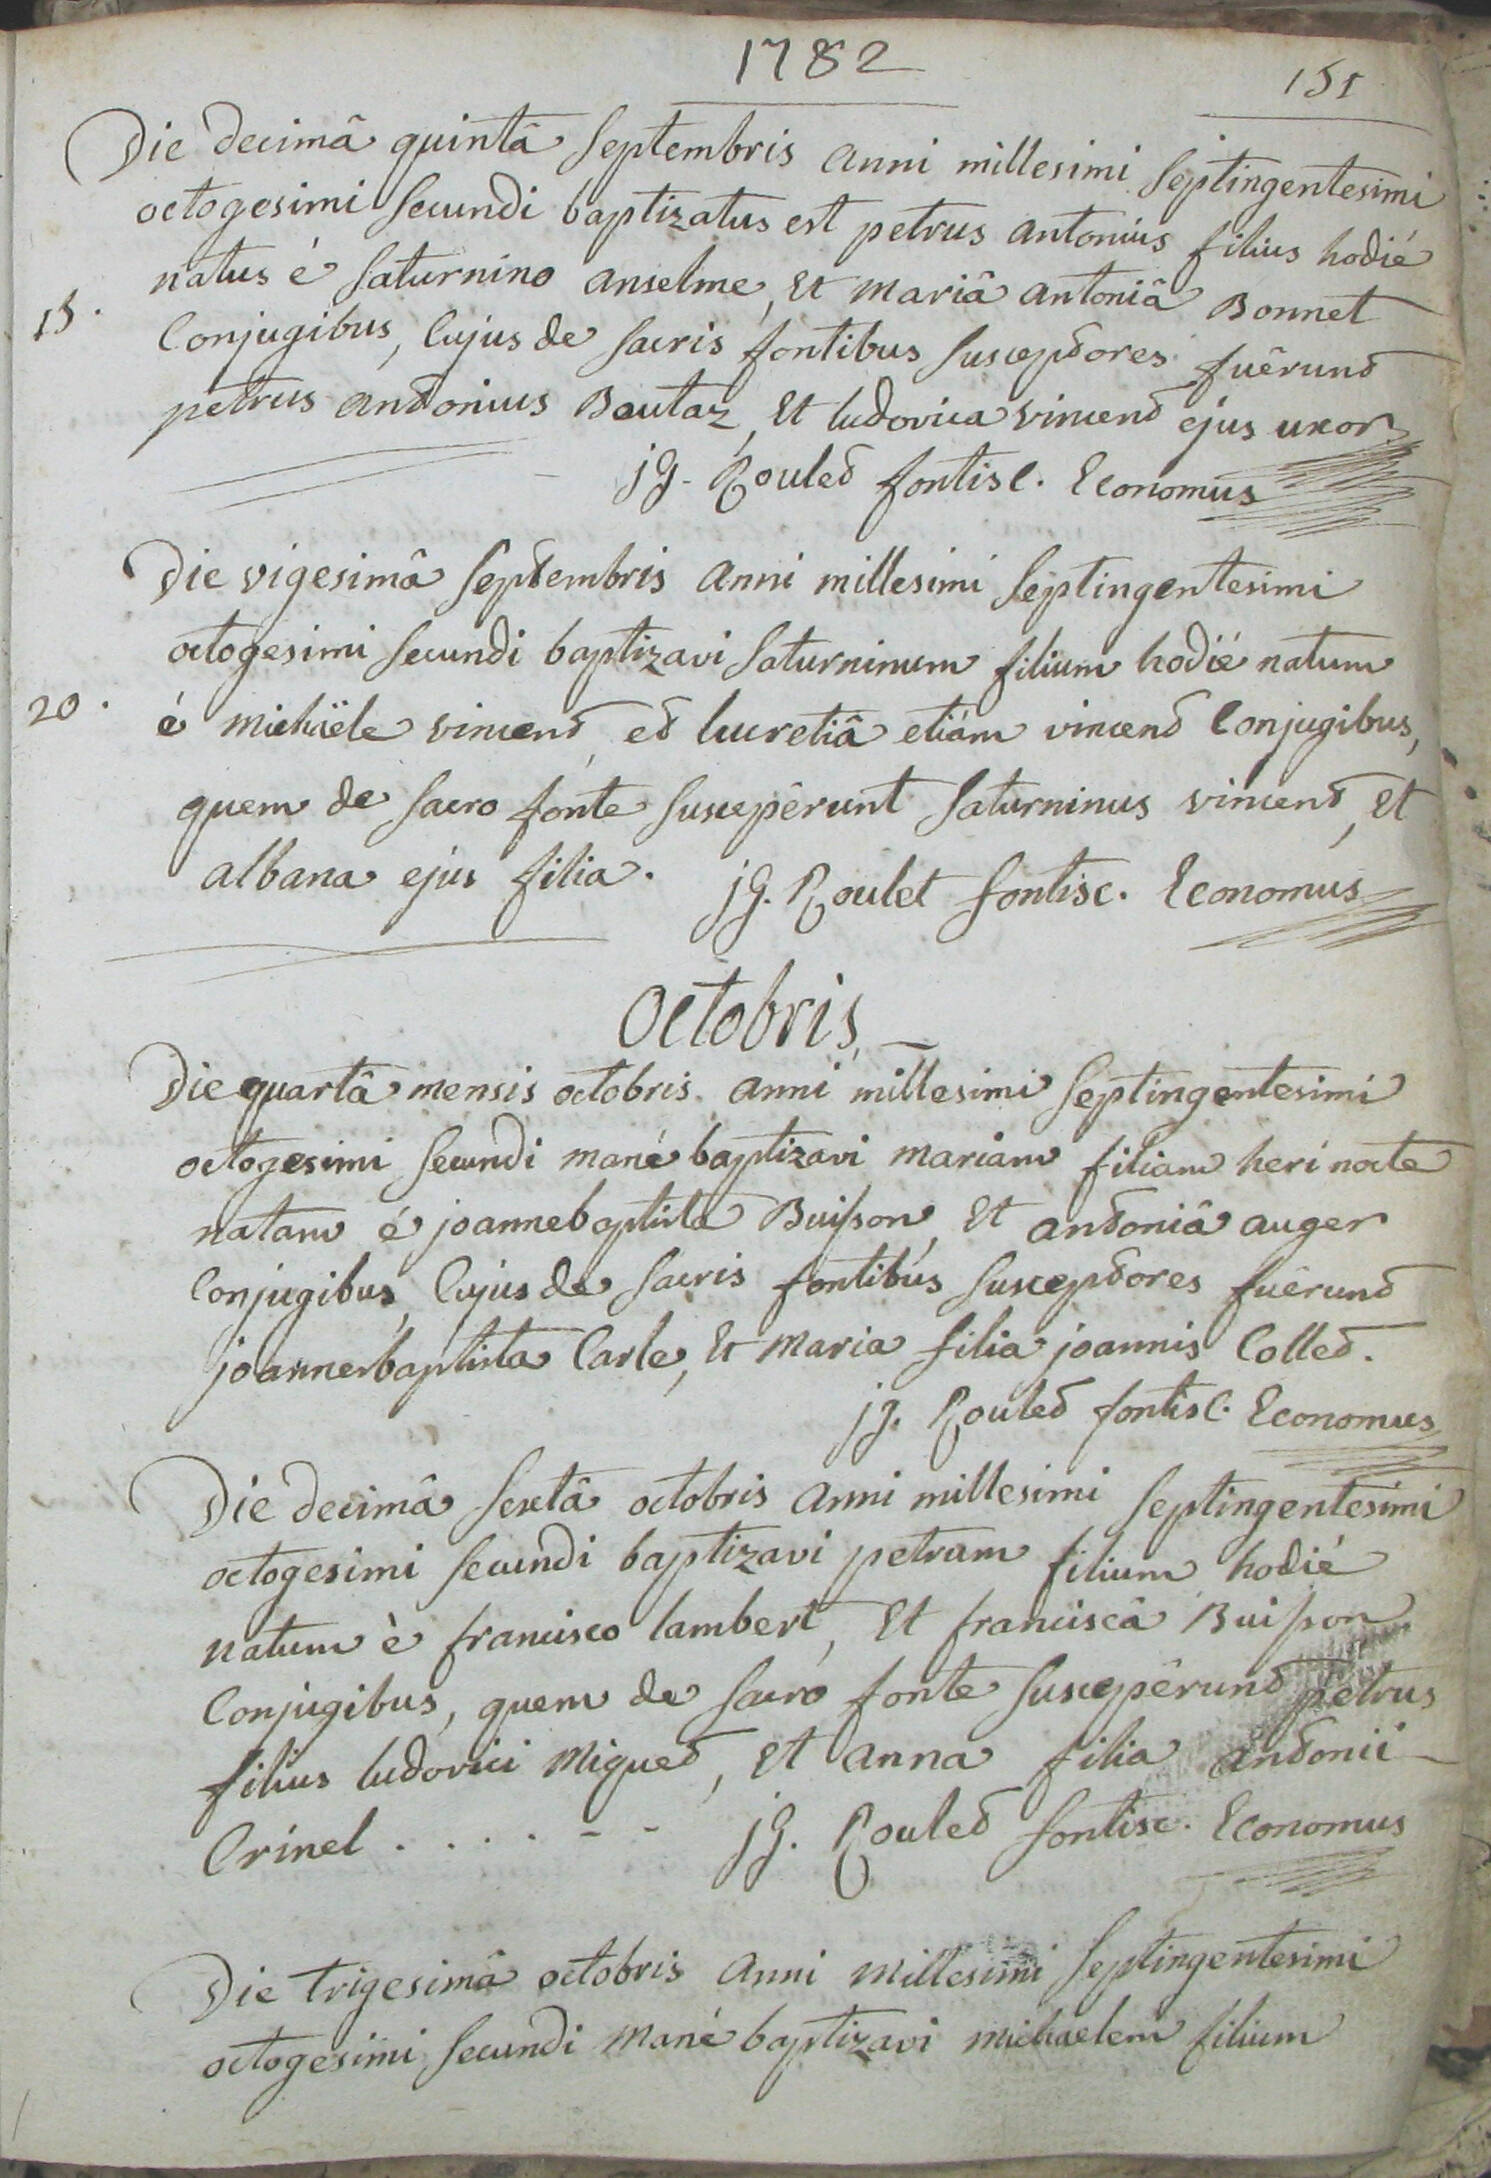 1782
151
Die decimâ quintâ Septembris anni millesimi Septingentesimi
octogesimi Secundi baptizatus est petrus antonius filius hodié
natus é Saturnino anselme, Et mariâ antoniâ Bonnet
15.
Conjugibus, Cujus de Sacris fontibus Susceptores fuêrunt
petrus antonius Boutaz, Et ludovica vincent ejus uxor
jG. Roulet fontisc. Economus
Die vigesimâ Septembris anni millesimi Septingentesimi
octogesimi Secundi baptizavi Saturninum filium hodié natum
20.
é michaële vincent, et lucretiâ etiám vincent Conjugibus,
quem de Sacro fonte Suscepêrunt Saturninus vincent, Et
albana ejus filia. jG. Roulet fontisc. Economus
Octobris
Die quartâ mensis octobris anni millesimi Septingentesimi
octogesimi Secundi mané baptizavi mariam filiam heri nocte
natam é joannebaptista Buisson, Et antoniâ auger
Conjugibus, Cujus de Sacris fontibus Susceptores fuêrunt
joannesbaptista Carle, Et maria filia joannis Collet.
jG. Roulet fontisc. Economus
Die decimâ Sextâ octobris anni millesimi Septingentesimi
octogesimi Secundi baptizavi petrum filium hodié
natum è francisco lambert, Et franciscâ Buisson
Conjugibus, quem de Sacro fonte Suscepêrunt petrus
filius ludovici miguet, Et anna filia antonii
Crinel . . . . . - - jG. Roulet fontisc. Economus
Die trigesimâ octobris anni millesimi Septingentesimi
octogesimi Secundi mané baptizavi michaelem filium